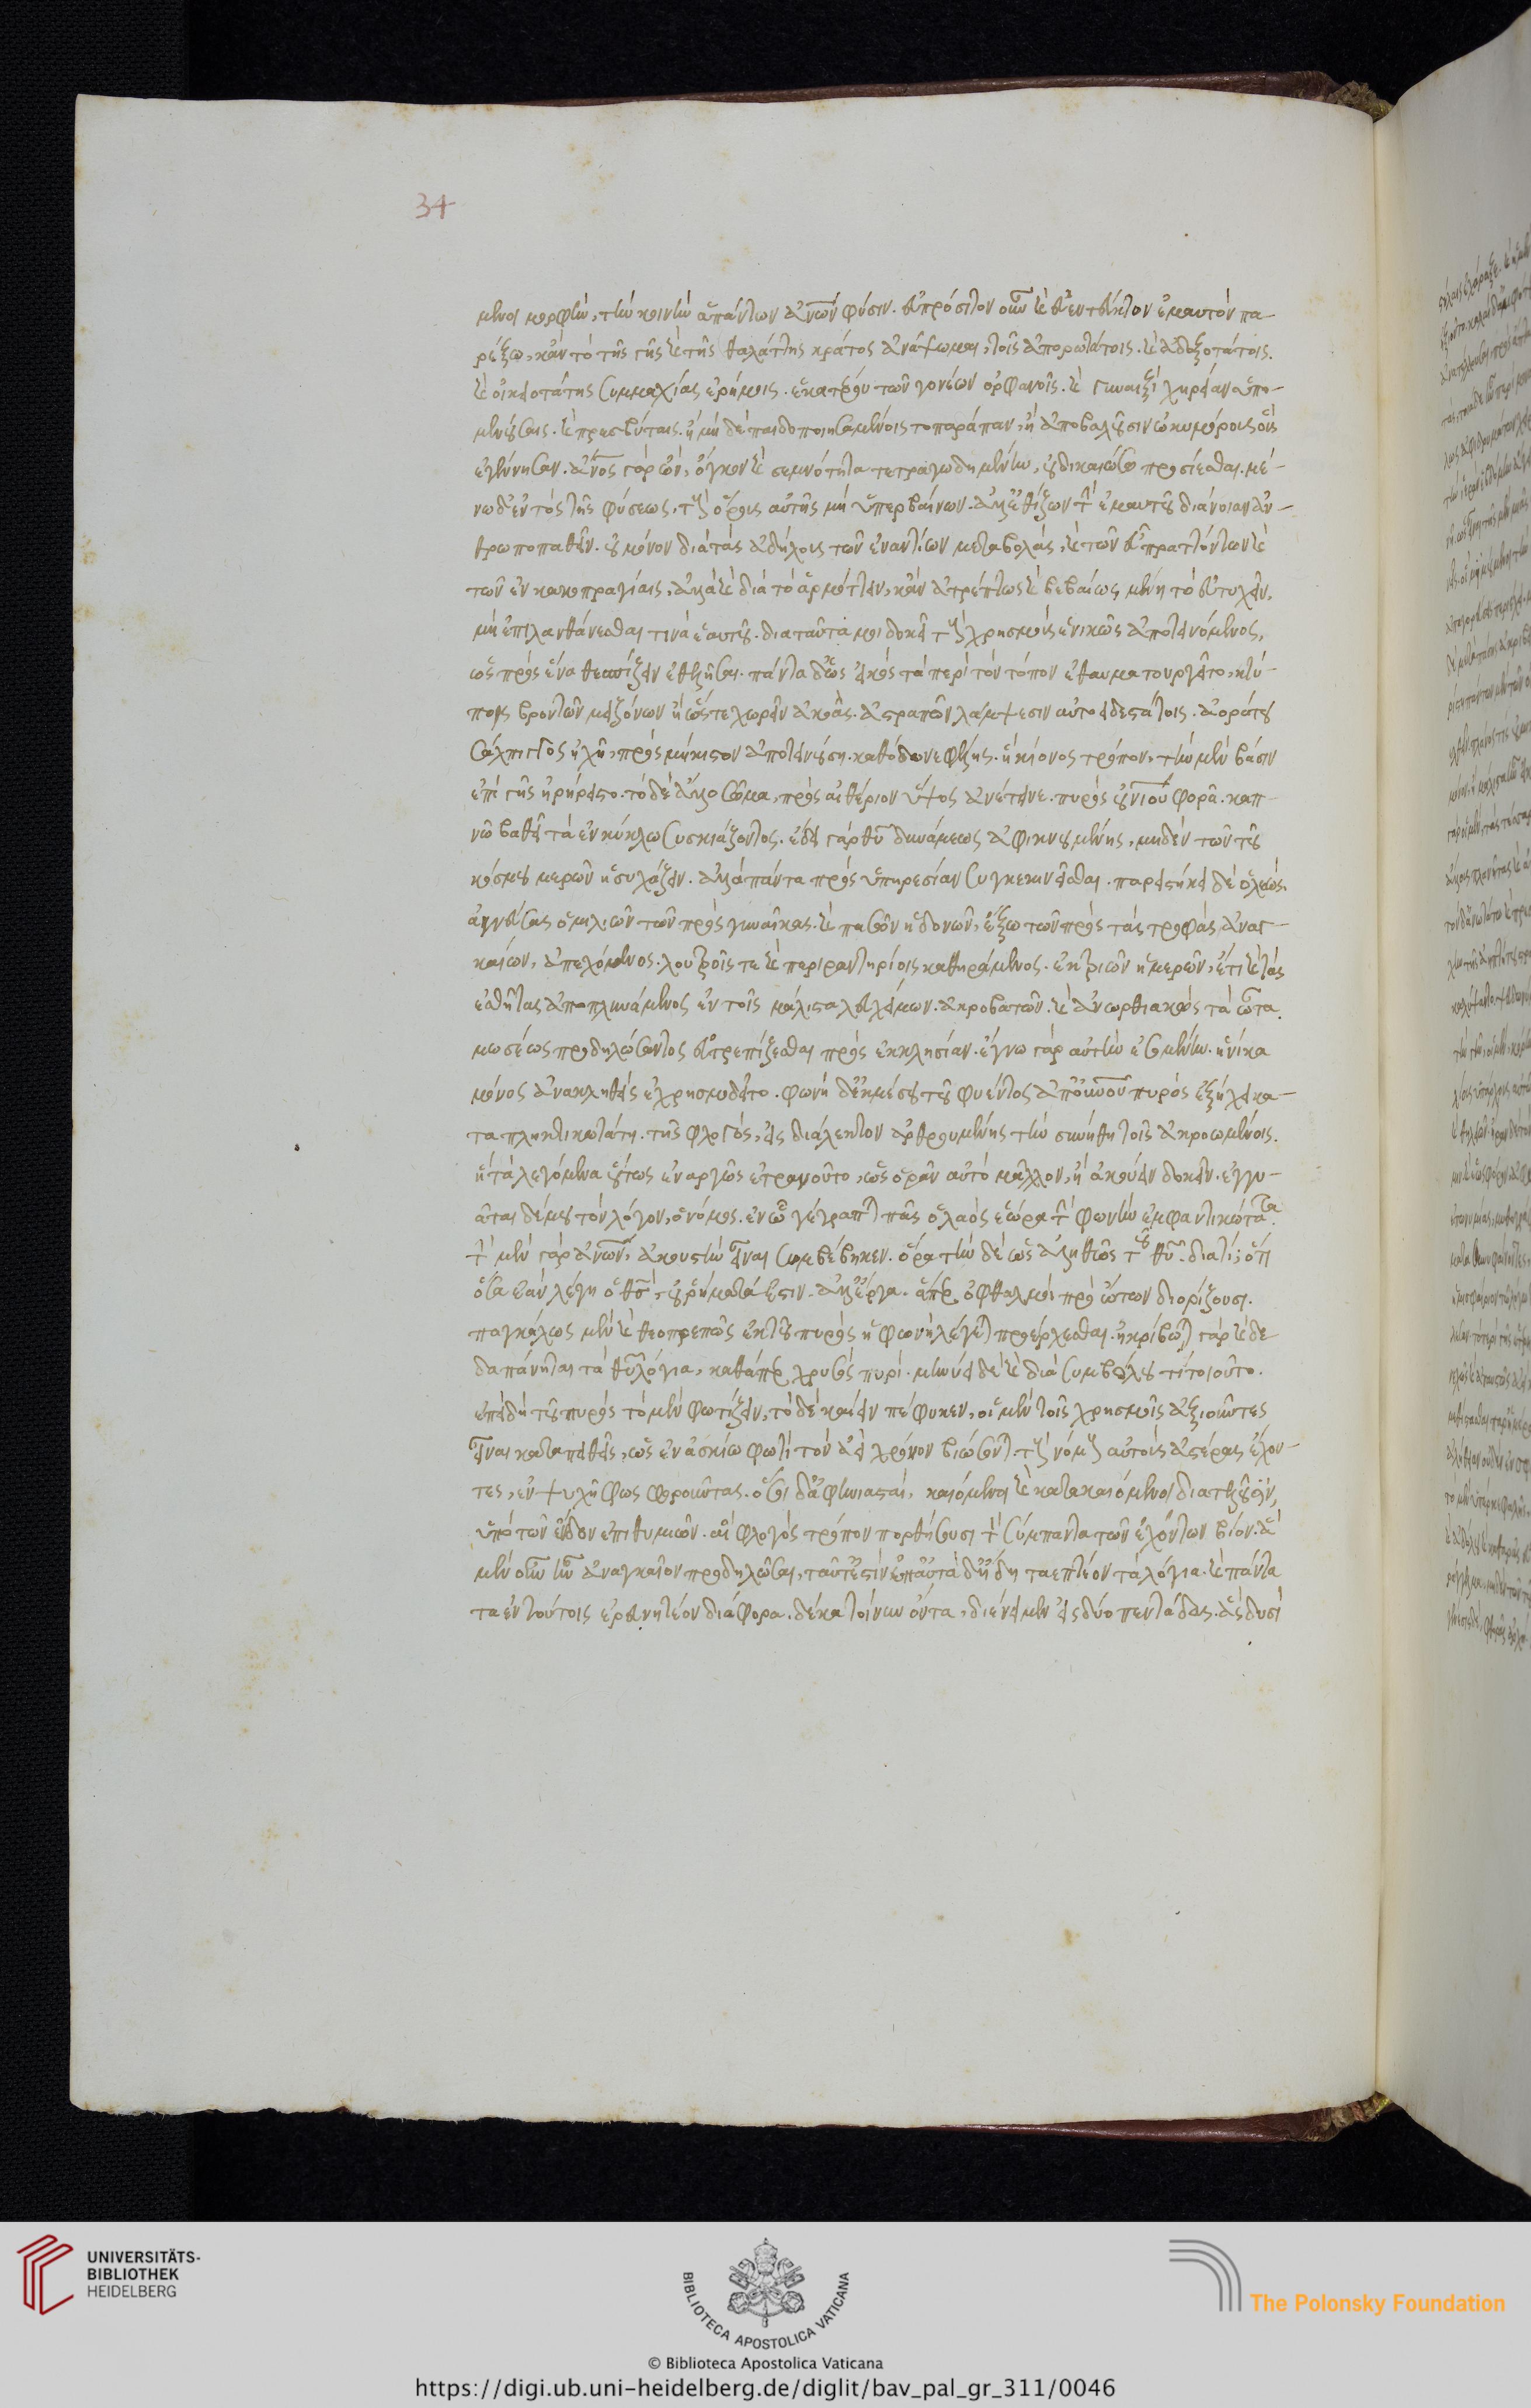 34
μένοι μορφὴν, τὴν κοινὴν ἁπάντων ἀν̅ων φύσιν. εὐπρόσιτον οὖν καὶ εὐέντευκτον ἐμαυτὸν πα-
ρέξω, κἂν τὸ τῆς γῆς καὶ τῆς θαλάττης κράτος ἀνάψωμαι, τοῖς ἀπορωτάτοις. καὶ ἀδοξοτάτοις.
καὶ οἰκειοτάτης συμμαχίας ἐρήμοις. ἑκατέρου τῶν γονέων ὀρφανοῖς. καὶ γυναιξὶ χηρείαν ὑπο-
μενούσαις. καὶ πρεσβύταις. ἢ μὴ δὲ παιδοποιησαμένοις τοπαράπαν, ἢ ἀποβαλοῦσιν ὠκυμόρους οὓς
ἐγέννησαν. ἄν̅ος γὰρ ὢν, ὄγκον καὶ σεμνότητα τετραγῳδημένην, οὐ δικαιώσω προσίεσθαι. μέ-
νω δ' ἐντὸς τῆς φύσεως, τοὺς ὅρους αὐτῆς μὴ ὑπερβαίνων. ἀλλ' ἐθίζων τὴν ἐμαυτοῦ διάνοιαν ἀν-
θρωποπαθεῖν. οὐ μόνον διὰ τὰς ἀδήλους τῶν ἐναντίων μεταβολὰς, καὶ τῶν εὐπραττόντων καὶ
τῶν ἐν κακοπραγίαις, ἀλλὰ καὶ διὰ τὸ ἁρμόττειν, κἂν ἀτρέπτως καὶ βεβαίως μένῃ τὸ εὐτυχεῖν,
μὴ ἐπιλανθάνεσθαι τινὰ ἑαυτοῦ. διαταῦτα μοι δοκεῖ τοὺς χρησμοὺς ἑνικῶς ἀποτεινόμενος,
ὡς πρὸς ἕνα θεσπίζειν ἐθελῆσαι. πάντα δ' ὡς εἰκὸς τὰ περὶ τὸν τόπον ἐθαυματουργεῖτο, κτύ-
ποις βροντῶν μειζόνων ἢ ὥστε χωρεῖν ἀκοὰς. ἀστραπῶν λάμψεσιν αὐγοειδεστάτοις. ἀοράτου
σάλπιγγος ἠχῇ, πρὸς μήκιστον ἀποτεινούσῃ. καθόδῳ νεφέλης. ἣ κίονος τρόπον, τὴν μὲν βάσιν
ἐπὶ γῆς ἠρήρειστο. τὸ δὲ ἄλλο σῶμα, πρὸς αἰθέριον ὕψος ἀνέτεινε. πυρὸς οὐνιου φορᾷ. καπ-
νῷ βαθεῖ τὰ ἐν κύκλῳ συσκιάζοντος. ἔδει γὰρ θυ̅ δυνάμεως ἀφικνουμένης, μηδὲν τῶν τοῦ
κόσμου μερῶν ἡσυχάζειν. ἀλλὰ πάντα πρὸς ὑπηρεσίαν συγκεκινεῖσθαι. παρειστήκει δὲ ὁ λεὼς.
ἁγνεύσας ὁμιλιῶν τῶν πρὸς γυναῖκας. καὶ πασῶν ἡδονῶν, ἔξω τῶν πρὸς τὰς τροφὰς ἀναγ-
καίων, ἀπεχόμενος. λουτροῖς τε καὶ περιραντηρίοις καθηράμενος. ἐκ τριῶν ἡμερῶν, ἔτι καὶ τὰς
ἐσθῆτας ἀποπλυνάμενος ἐν τοῖς μάλιστα λευχείμων. ἀκροβατῶν. καὶ ἀνωρθιακὼς τὰ ὦτα.
μωσέως προδηλώσαντος εὐτρεπίζεσθαι πρὸς ἐκκλησίαν. ἔγνω γὰρ αὐτὴν ἐσομένην. ἡνίκα
μόνος ἀνακληθεὶς ἐχρησμῳδεῖτο. φωνὴ δ' ἐκ μέσου τοῦ φυέντος ἀπ' οὐνου πυρὸς ἐξήχει κα-
ταπληκτικωτάτη. τῆς φλογὸς, εἰς διάλεκτον ἀρθρουμένης τὴν συνήθη τοῖς ἀκροωμένοις.
ᾗ τὰ λεγόμενα οὕτως ἐναργῶς ἐτρανοῦτο, ὡς ὁρᾶν αὐτὸ μᾶλλον, ἢ ἀκούειν δοκεῖν. ἐγγυ-
ᾶται δέ μου τὸν λόγον, ὁ νόμος. ἐν ᾧ γέγραπται πᾶς ὁ λαὸς ἑώρα τὴν φωνὴν ἐμφαντικώτατα.
τὴν μὲν γὰρ ἀν̅ων, ἀκουστὴν εἶναι συμβέβηκεν. ὁρατὴν δὲ ὡς ἀληθῶς τοῦ θυ̅. διατί; ὅτι
ὅσα ἐὰν λέγῃ ὁ θσ̅, οὐ ῥήματά ἐστιν. ἀλλ' ἔργα. ἅπερ ὀφθαλμοὶ πρὸ ὤτων διορίζουσι.
παγκάλως μὲν καὶ θεοπρεπῶς ἐκ τοῦ πυρὸς ἡ φωνὴ λέγεται προέρχεσθαι. ἠκρίβωται γὰρ καὶ δε-
δαπάνηται τὰ θυ̅ λόγια, καθάπερ χρυσὸς πυρί. μηνύει δὲ καὶ διὰ συμβόλου τί τοιοῦτο.
ἐπειδὴ τοῦ πυρὸς τὸ μὲν φωτίζειν, τὸ δὲ καίειν πέφυκεν, οἱ μὲν τοῖς χρησμοῖς ἀξιοῦντες
εἶναι καταπειθεῖς, ὡς ἐν ἀσκίῳ φωτὶ τὸν ἀεὶ χρόνον βιώσονται. τοὺς νόμους αὐτοὺς ἀστέρας ἔχον-
τες, ἐν ψυχῇ φωςφοροῦντας. ὅσοι δ' ἀφηνιασταὶ, καιόμενοι καὶ κατακαιόμενοι διατελοῦσιν,
ὑπὸ τῶν ἔνδον ἐπιθυμιῶν. αἳ φλογὸς τρόπον πορθήσουσι τὸν σύμπαντα τῶν ἐχόντων βίον. ἃ
μὲν οὖν ἦν ἀναγκαῖον προδηλῶσαι, ταῦτ' ἐστὶν ἐπ' αὐτὰ δ' ἤδη τρεπτέον τὰ λόγια. καὶ πάντα
τὰ ἐν τούτοις ἐρευνητέον διάφορα. δέκα τοίνυν ὄντα, διένειμεν εἰς δύο πεντάδας. ἃς δυσὶ
UNIVERSITÄTS-
BIBLIOTHEK
HEIDELBERG
BIBLIOTECA APOSTOLICA VATICANA
The Polonsky Foundation
© Biblioteca Apostolica Vaticana
https://digi.ub.uni-heidelberg.de/diglit/bav_pal_gr_311/0046